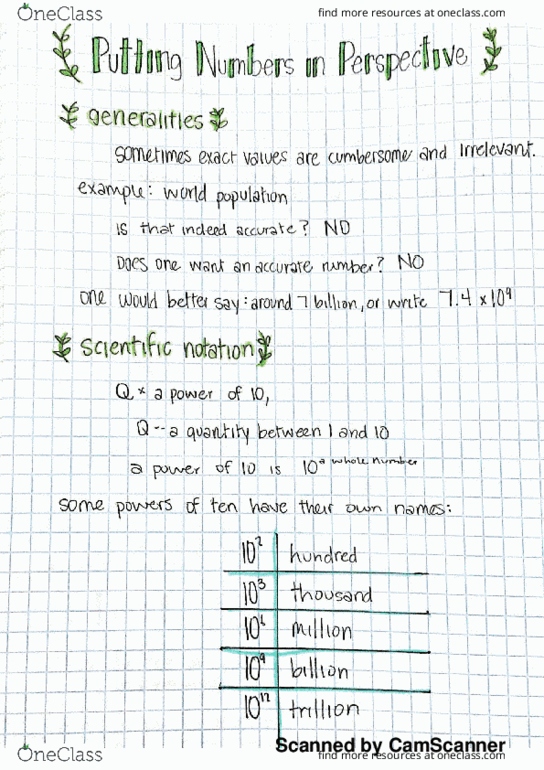 OneClass
find more resources at oneclass.com
Putting Numbers in Perspective
generalities
sometimes exact values are cumbersome and irrelevant.
example: world population
is that indeed accurate? NO
Does one want an accurate number? NO
one would better say: around 7 billion, or write 7.4 x 10⁹
scientific notation
Q * a power of 10,
Q -- a quantity between 1 and 10
a power of 10 is 10^a whole number
some powers of ten have their own names:
10² hundred
10³ thousand
10⁶ million
10⁹ billion
10¹² trillion
Scanned by CamScanner
OneClass
find more resources at oneclass.com